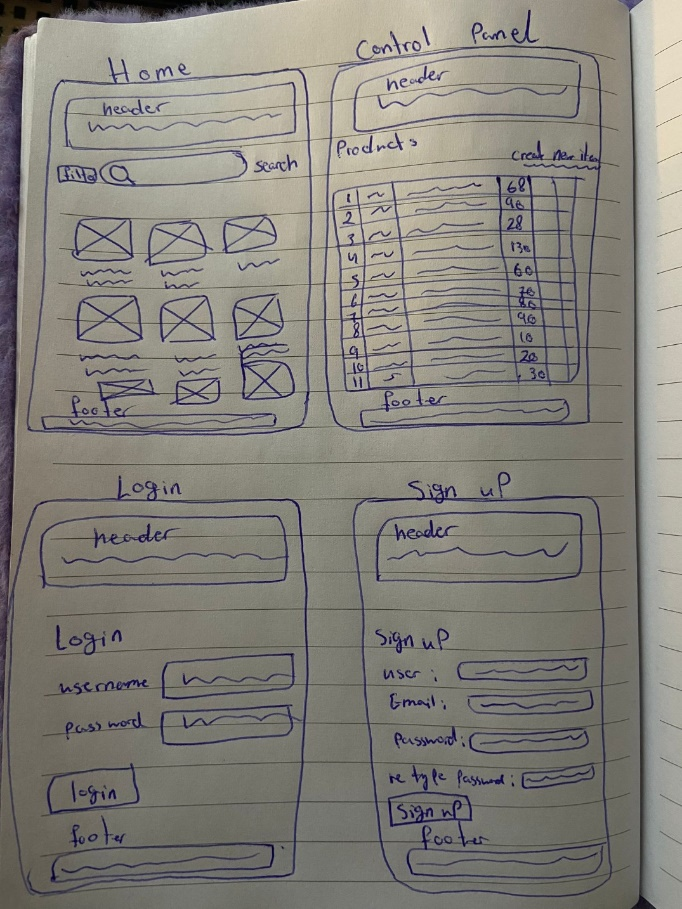 Home
header
search
footer
Control Panel
header
Products
creat new item
1 68
2 40
3 28
4 130
5 60
6 70
7 80
8 90
9 10
10 20
11 30
footer
Login
header
Login
username
password
login
footer
Sign up
header
Sign up
user :
Email :
Password :
re type Password :
Sign up
footer